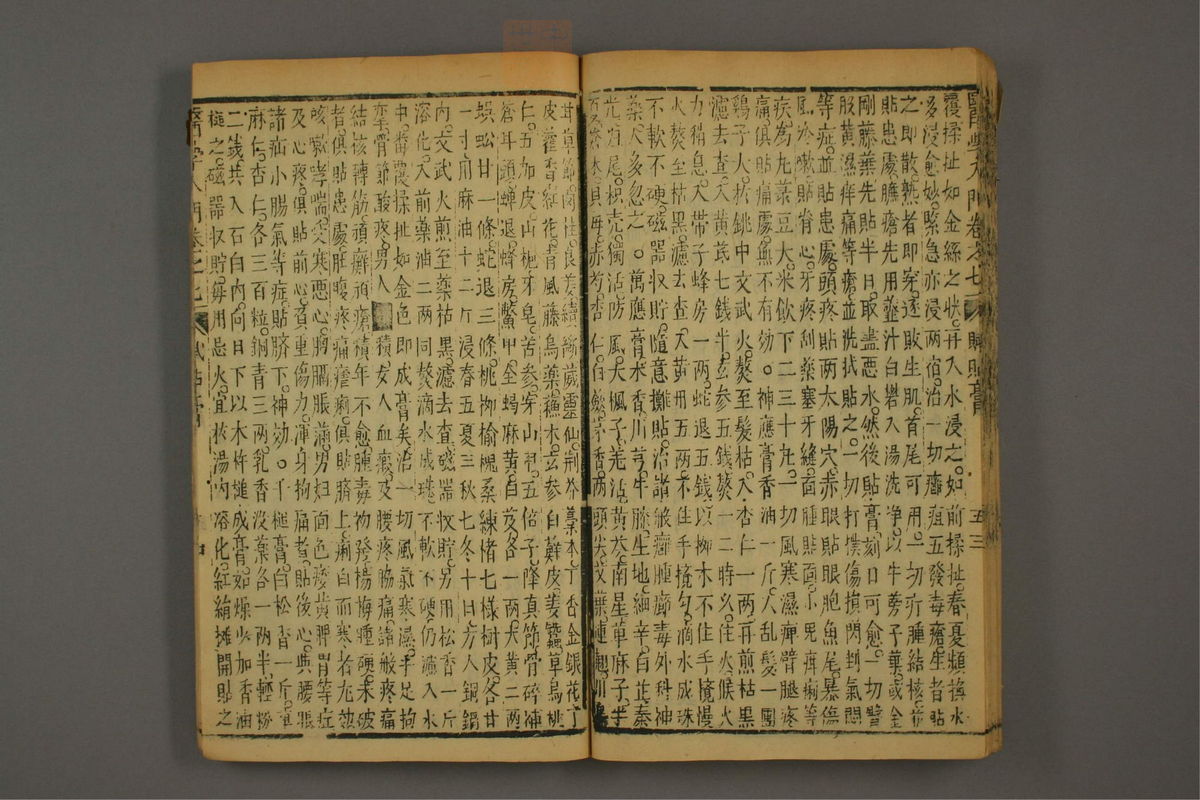 醫學入門卷之七 賦貼膏 五三
覆揉扯如金絲之狀再入水浸之如前揉扯春夏頻換水
多浸愈妙緊急亦浸兩宿治一切癰疽五發毒瘡生者貼
之即散熟者即穿逐敗生肌首尾可用一切疔腫結核
貼患處臁瘡先用虀汁白礬入湯洗淨以牛蒡子葉或金
剛藤葉先貼半日取盡惡水然後貼膏刻日可愈一切臂
股黃濕痒痛等瘡並洗拭貼之一切打撲傷損閃刺氣悶
等症並貼患處頭疼貼兩太陽穴赤眼貼眼胞魚尾暴傷
風冷嗽貼脊心牙疼刮藥塞牙縫面腫貼面小兒疳痢等
疾為丸菉豆大米飲下二三十丸一切風寒濕痺臂腿疼
痛俱貼痛處無不有効○神應膏香油一斤入乱髮一團
鷄子大於銚中文武火熬至髮枯入杏仁一兩再煎枯黑
濾去查入黃芪七錢半玄參五錢熬一二時久住火候火
力稍息入帶子蜂房一兩蛇退五錢以柳木不住手攪慢
火熬至枯黑濾去查入黃丹五兩不住手攪勻滴水成珠
不軟不硬磁器收貯隨意攤貼治諸般癰腫癤毒外科神
藥人多忽之○萬應膏木香川芎牛膝生地細辛白芷秦
艽歸尾枳壳獨活防風大楓子羌活黃芩南星草麻子半
夏蒼朮貝母赤芍杏仁白斂茅香兩頭尖艾葉連翹川烏
甘草節肉桂良姜續斷威靈仙荊芥藁本丁香金銀花丁
皮藿香紅花青風藤烏藥蘓木玄參白鮮皮姜蠶草烏桃
仁五加皮山梔牙皂苦參穿山甲五倍子降真節骨碎補
蒼耳頭蟬退蜂房鱉甲全蝎麻黃白芨各一兩大黃二兩
蜈蚣廿一條蛇退三條桃柳榆槐桑練楮七樣樹皮各廿
一寸用麻油十二斤浸春五夏三秋七冬十日方入銅鍋
內文武火煎至藥枯黑濾去查磁器收貯另用松香一斤
溶化入前藥油二兩同熬滴水成珠不軟不硬仍濾入水
中番覆揉扯如金色即成膏矣治一切風氣寒濕手足拘
攣骨節酸疼男人積女人血瘕及腰疼脇痛諸般疼痛
結核轉筋頑癬頑瘡積年不愈腫毒初發楊梅腫硬未破
者俱貼患處肚腹疼痛瘧痢俱貼臍上痢白而寒者尤效
咳嗽哮喘受寒惡心胸膈脹滿男婦面色痿黃脾胃等症
及心疼俱貼前心負重傷力渾身拘痛者貼後心與腰眼
諸疝小腸氣等症貼臍下神効○千槌膏白松香一斤
麻仁杏仁各三百粒銅青三兩乳香沒藥各一兩半輕粉
二錢共入石臼內向日下以木杵槌成膏如燥少加香油
槌之磁器收貯每用忌火宜於湯內溶化紅絹攤開貼之
醫學入門卷之七 賦貼膏